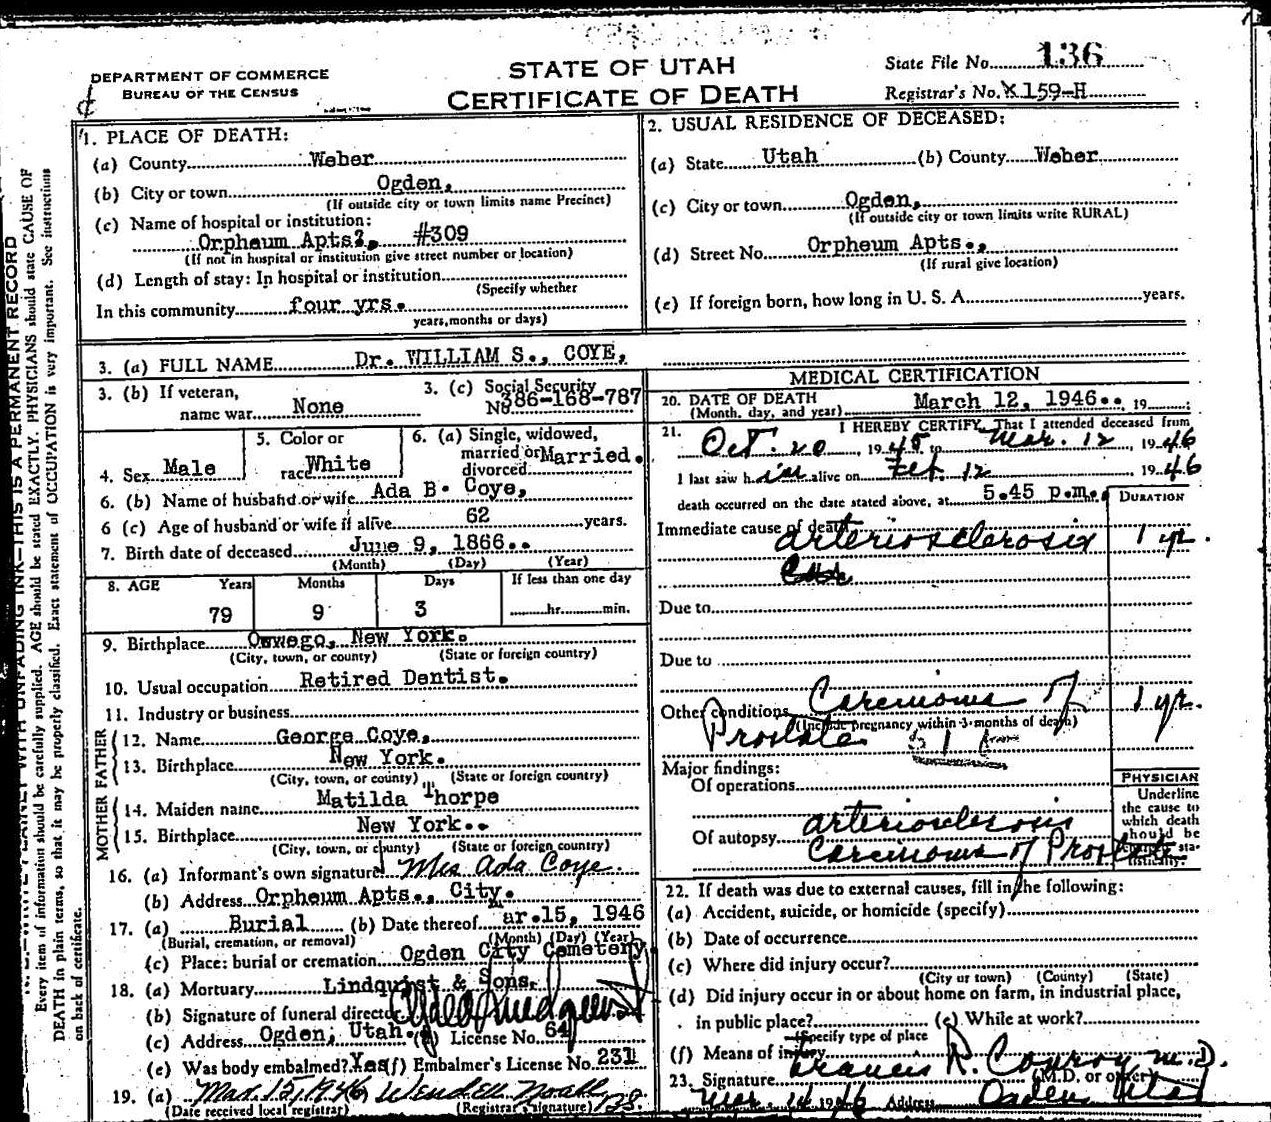 STATE OF UTAH
CERTIFICATE OF DEATH
DEPARTMENT OF COMMERCE
BUREAU OF THE CENSUS
State File No. 136
Registrar's No. X 159-H
1. PLACE OF DEATH:
(a) County Weber
(b) City or town Ogden,
(If outside city or town limits name Precinct)
(c) Name of hospital or institution:
Orpheum Apts?, #309
(If not in hospital or institution give street number or location)
(d) Length of stay: In hospital or institution
(Specify whether
In this community four yrs.
years, months or days)
2. USUAL RESIDENCE OF DECEASED:
(a) State Utah (b) County Weber
(c) City or town Ogden,
(If outside city or town limits write RURAL)
(d) Street No. Orpheum Apts.,
(If rural give location)
(e) If foreign born, how long in U. S. A. years.
3. (a) FULL NAME Dr. WILLIAM S., COYE,
3. (b) If veteran, name war None
3. (c) Social Security No. 386-168-787
4. Sex Male
5. Color or race White
6. (a) Single, widowed, married or divorced Married.
6. (b) Name of husband or wife Ada B. Coye,
6 (c) Age of husband or wife if alive 62 years.
7. Birth date of deceased June 9, 1866..
(Month) (Day) (Year)
8. AGE Years Months Days If less than one day
79 9 3 hr. min.
9. Birthplace Oswego, New York.
(City, town, or county) (State or foreign country)
10. Usual occupation Retired Dentist.
11. Industry or business
FATHER
12. Name George Coye,
13. Birthplace New York.
(City, town, or county) (State or foreign country)
MOTHER
14. Maiden name Matilda Thorpe
15. Birthplace New York..
(City, town, or county) (State or foreign country)
16. (a) Informant's own signature Mrs Ada Coye.
(b) Address Orpheum Apts., City.
17. (a) Burial (b) Date thereof ar.15, 1946
(Burial, cremation, or removal) (Month) (Day) (Year)
(c) Place: burial or cremation Ogden City Cemetery
18. (a) Mortuary Lindquist & Sons.
(b) Signature of funeral director
(c) Address Ogden, Utah. License No. 64
(e) Was body embalmed? Yes (f) Embalmer's License No. 231
19. (a) Mar. 15, 1946 Wendell Noall 138.
(Date received local registrar) (Registrar's signature)
MEDICAL CERTIFICATION
20. DATE OF DEATH
(Month, day, and year) March 12, 1946.. 19
21. I HEREBY CERTIFY, That I attended deceased from
Oct. 20, 1945 to Mar. 12 1946
I last saw him alive on Feb. 12 1946
death occurred on the date stated above, at 5.45 p.m.
DURATION
Immediate cause of death arteriosclerosis 1 yr.
Due to
Due to
Other conditions Carcinoma of 1 yr.
(Include pregnancy within 3 months of death)
Prostate
Major findings:
Of operations
Of autopsy arteriosclerosis
Carcinoma of Prostate
PHYSICIAN
Underline
the cause to
which death
should be
charged sta-
tistically.
22. If death was due to external causes, fill in the following:
(a) Accident, suicide, or homicide (specify)
(b) Date of occurrence
(c) Where did injury occur?
(City or town) (County) (State)
(d) Did injury occur in or about home on farm, in industrial place,
in public place? (e) While at work?
(Specify type of place
(f) Means of injury
23. Signature Francis R. Conroy M.D.
(M.D. or other)
Mar. 14 1946 Address Ogden Utah
Every item of information should be carefully supplied. AGE should be stated EXACTLY. PHYSICIANS should state CAUSE OF
DEATH in plain terms, so that it may be properly classified. Exact statement of OCCUPATION is very important. See instructions
on back of certificate.
WRITE PLAINLY WITH UNFADING INK—THIS IS A PERMANENT RECORD